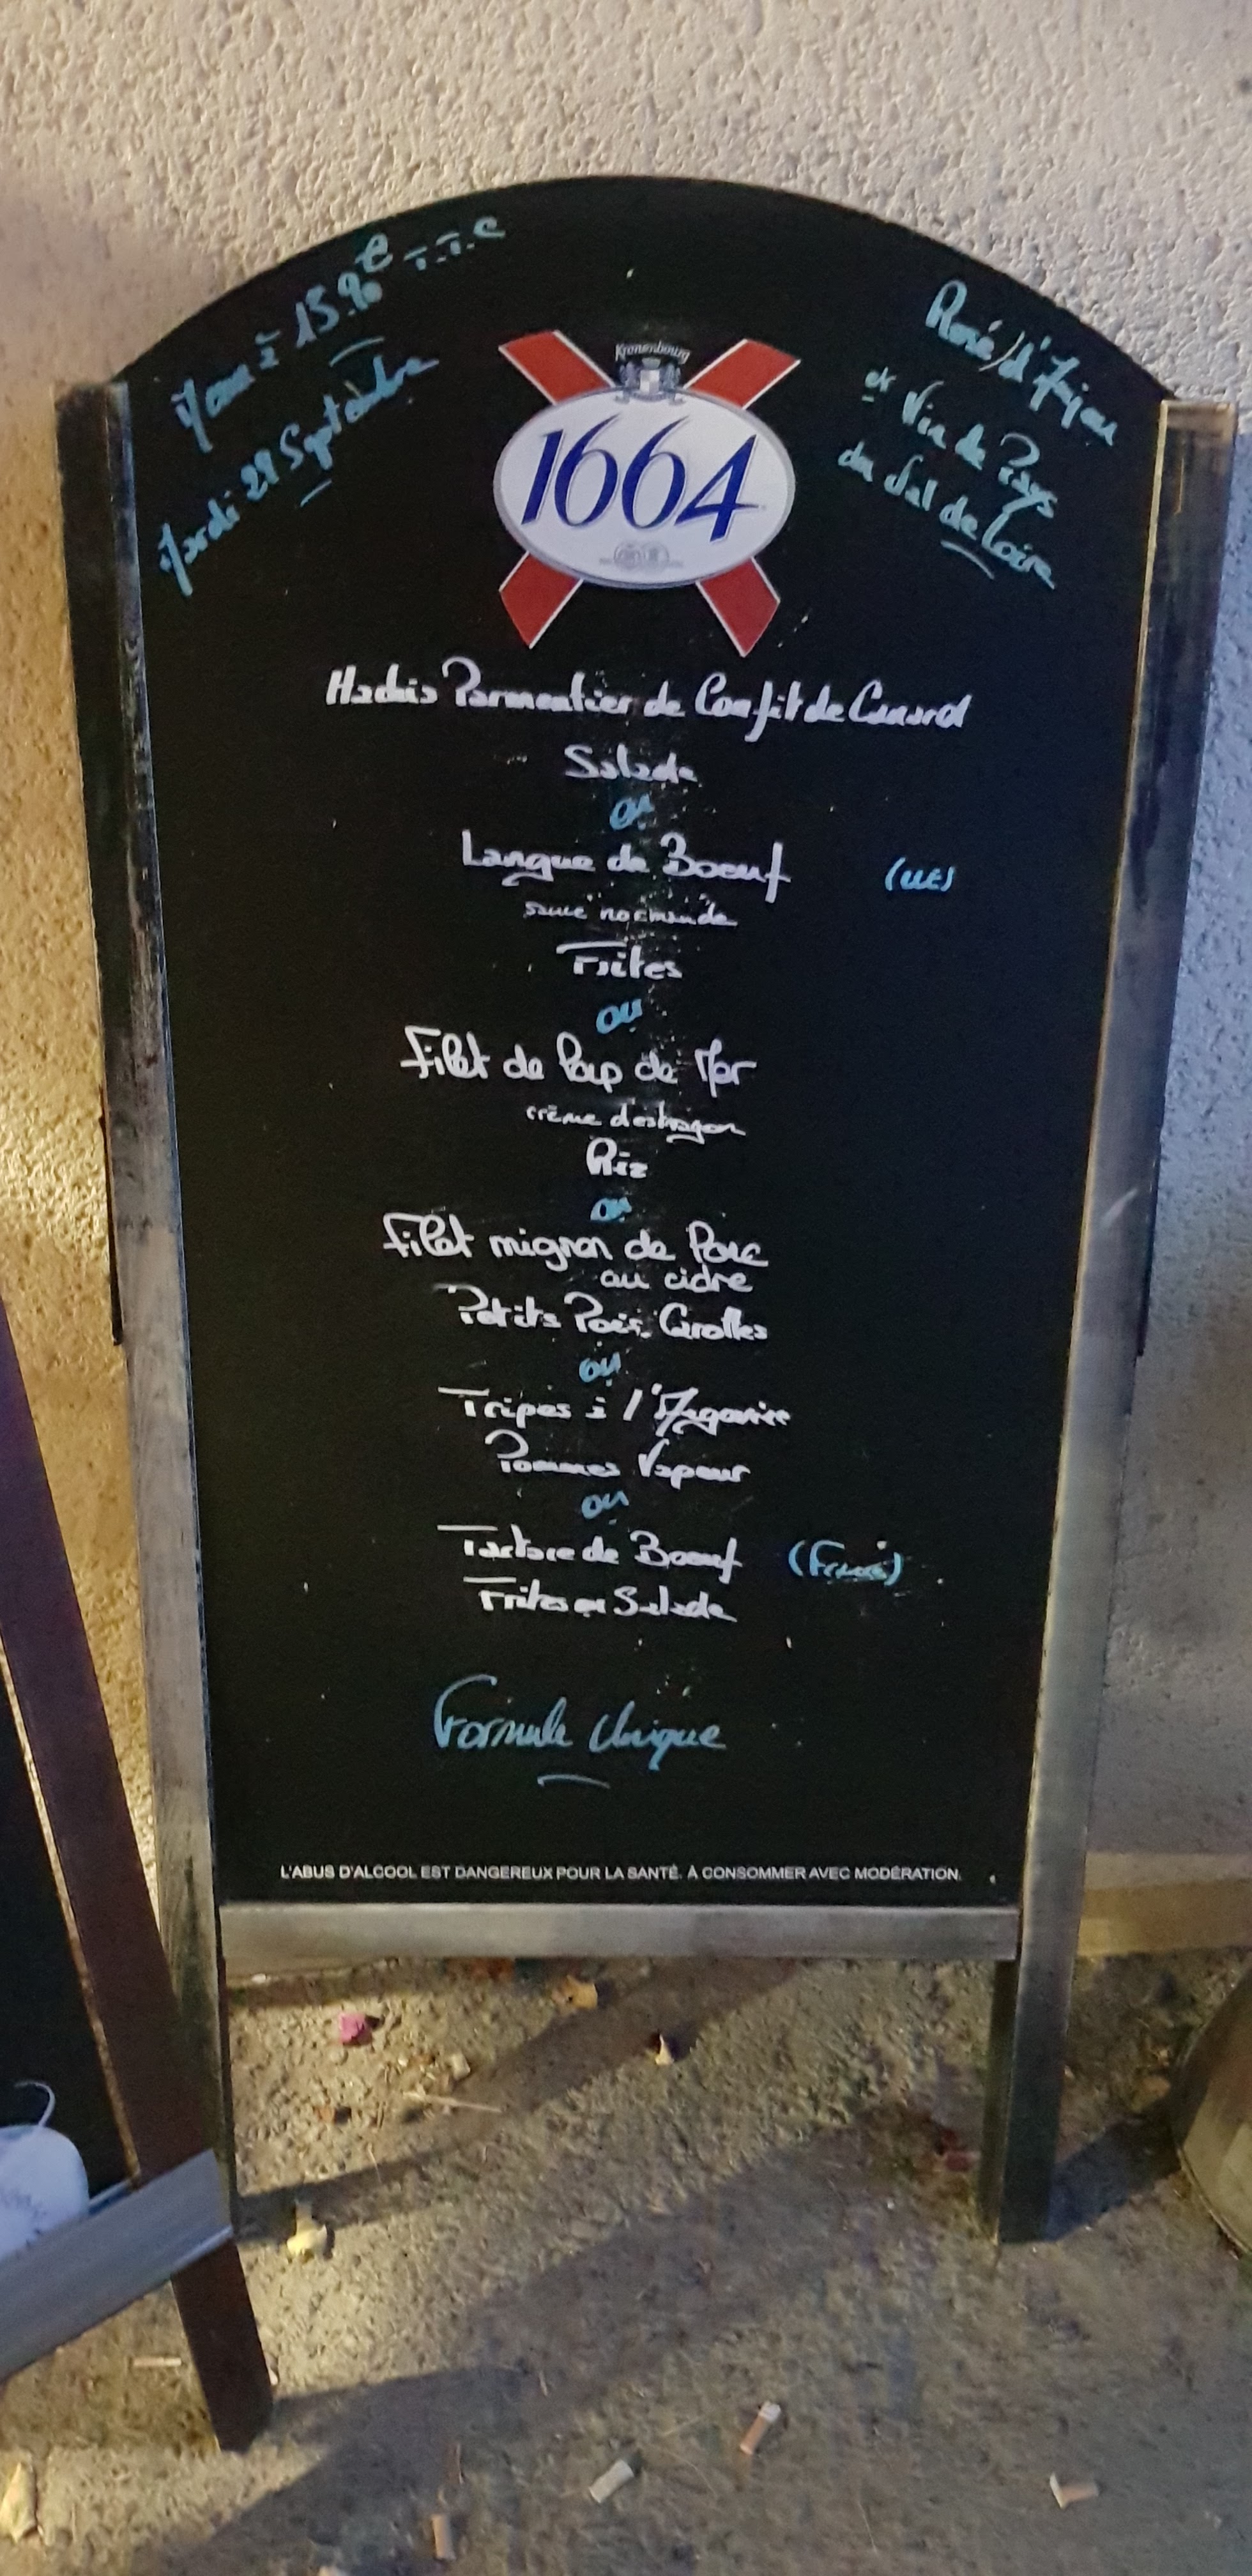 Menu à 15.90€ T.T.C
Mardi 29 Septembre
René d'Anjou
et Vin de Pays
du Val de Loire
Kronenbourg
1664
Hachis Parmentier de Confit de Canard
Salade
ou
Langue de Boeuf (UE)
sauce normande
Frites
ou
Filet de Loup de Mer
crème d'estragon
Riz
ou
Filet mignon de Porc
au cidre
Petits Pois. Carottes
ou
Tripes à l'
Pommes Vapeur
ou
Tartare de Boeuf (France)
Frites ou Salade
Formule Unique
L'ABUS D'ALCOOL EST DANGEREUX POUR LA SANTÉ. À CONSOMMER AVEC MODÉRATION.